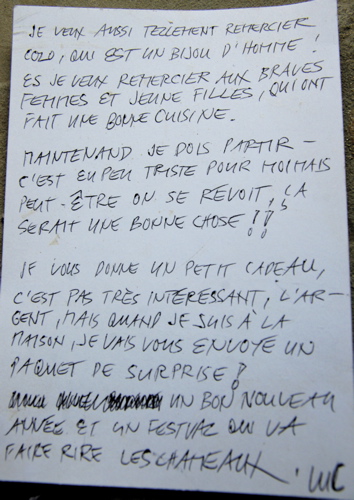 JE VEUX AUSSI TELLEMENT REMERCIER
COLO, QUI EST UN BIJOU D'HOMME!
ES JE VEUX REMERCIER AUX BRAVES
FEMMES ET JEUNE FILLES, QUI ONT
FAIT UNE BONNE CUISINE.
MAINTENAND JE DOIS PARTIR –
C'EST EU PEU TRISTE POUR MOI MAIS
PEUT-ÊTRE ON SE REVOIT, ÇA
SERAIT UNE BONNE CHOSE!!
JE VOUS DONNE UN PETIT CADEAU,
C'EST PAS TRÈS INTERESSANT, L'AR-
GENT, MAIS QUAND JE SUIS À LA
MAISON, JE VAIS VOUS ENVOYE UN
PAQUET DE SURPRISE!
UN BON NOUVEAU
ANNÉE ET UN FESTIVAL QUI VA
FAIRE RIRE LES CHAMEAUX. LUC